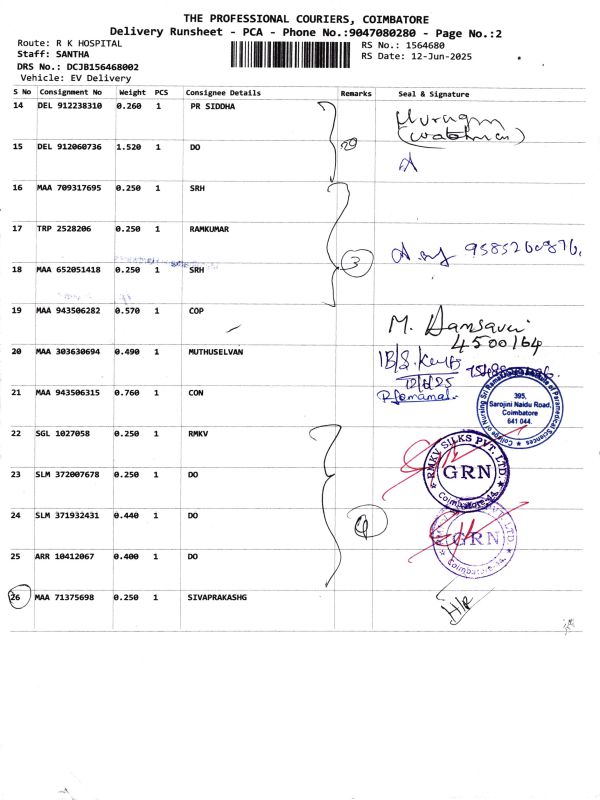 THE PROFESSIONAL COURIERS, COIMBATORE
Delivery Runsheet - PCA - Phone No.:9047080280 - Page No.:2
Route: R K HOSPITAL
Staff: SANTHA
DRS No.: DCJB156468002
Vehicle: EV Delivery
RS No.: 1564680
RS Date: 12-Jun-2025
S No Consignment No Weight PCS Consignee Details Remarks Seal & Signature
14 DEL 912238310 0.260 1 PR SIDDHA
(watchman)
15 DEL 912060736 1.520 1 DO
16 MAA 709317695 0.250 1 SRH
17 TRP 2528206 0.250 1 RAMKUMAR
3
18 MAA 652051418 0.250 1 SRH
19 MAA 943506282 0.570 1 COP
4500164
20 MAA 303630694 0.490 1 MUTHUSELVAN
21 MAA 943506315 0.760 1 CON
395,
Sarojini Naidu Road,
Coimbatore
641 044.
22 SGL 1027058 0.250 1 RMKV
RMKV SILKS PVT. LTD
GRN
Coimbatore-44.
23 SLM 372007678 0.250 1 DO
24 SLM 371932431 0.440 1 DO
GRN
Coimbatore-44.
25 ARR 10412067 0.400 1 DO
26 MAA 71375698 0.250 1 SIVAPRAKASHG